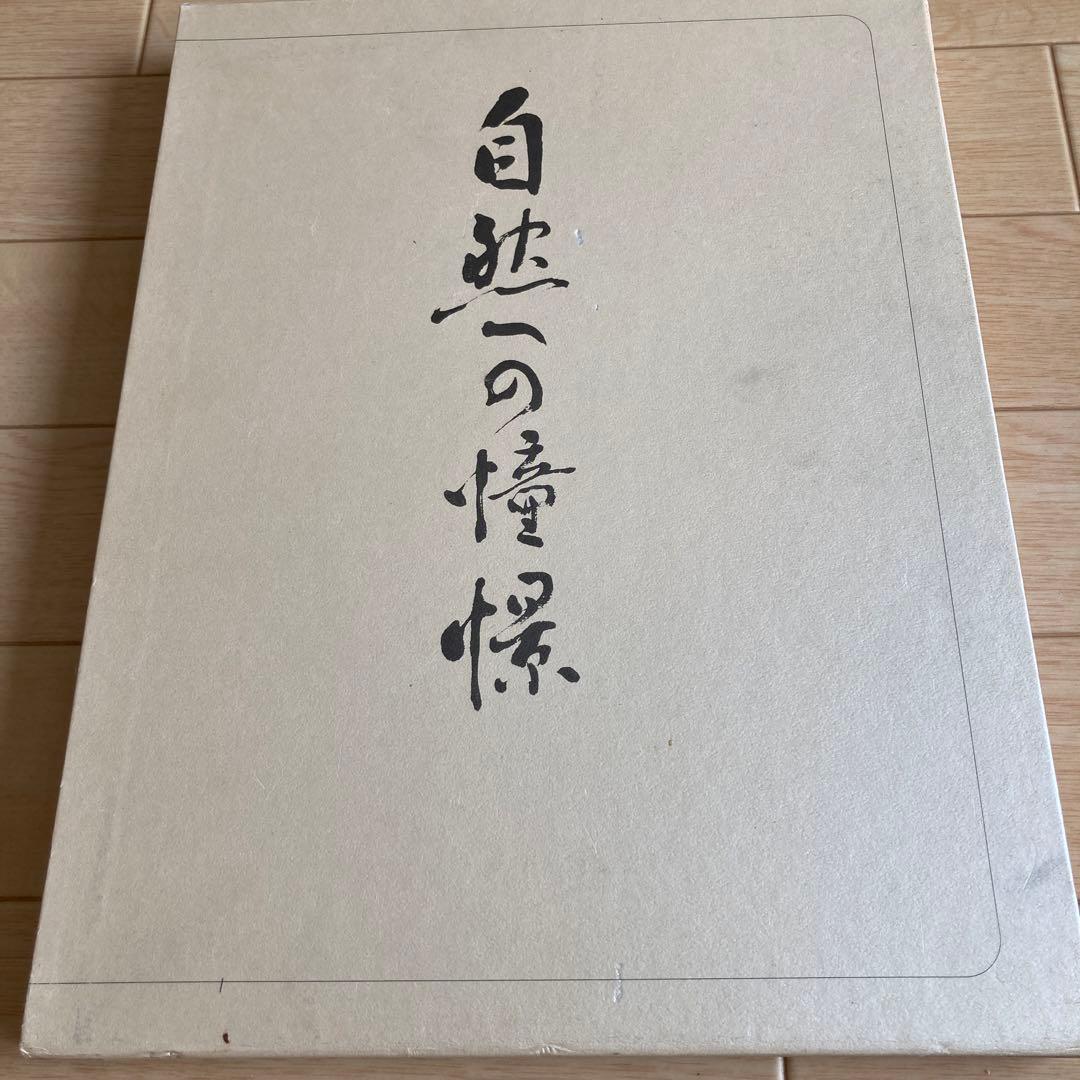 自然への憧憬